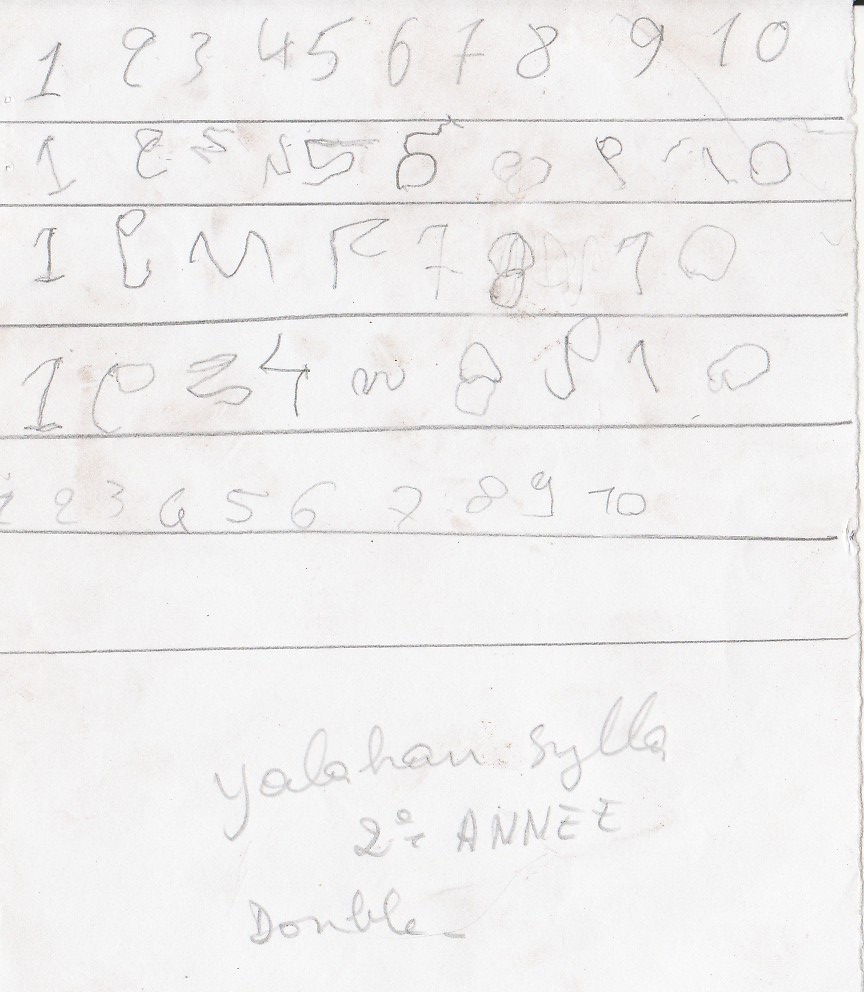 1 2 3 4 5 6 7 8 9 10
1 2 5 5 8 9 10
1 7 8 1 0
1 3 4 8 1 0
1 2 3 4 5 6 7 8 9 10
Yalahan Sylla
2e ANNEE
Double